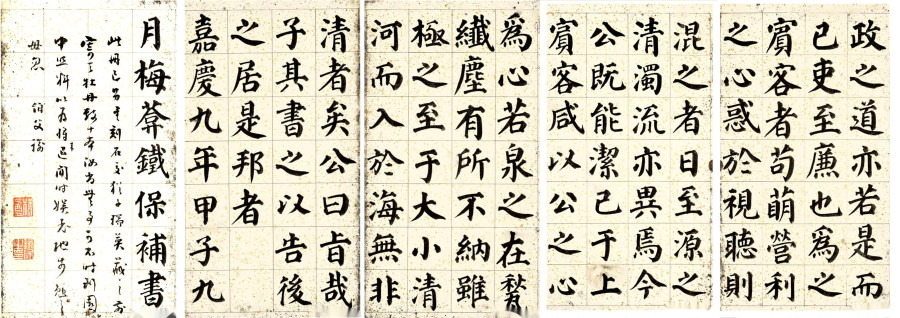 政之道亦若是而
已吏至廉也爲之
賓客者苟萌營利
之心惑於視聽則
混之者日至源之
清濁流亦異焉今
公既能潔己于上
賓客咸以公之心
爲心若泉之在甃
纖塵有所不納雖
極之至于大小清
河而入於海無非
清者矣公曰旨哉
子其書之以告後
之居是邦者
嘉慶九年甲子九
月梅葊鐵保補書
此冊已 刻石交 子瑞 藏之
牡丹數十本